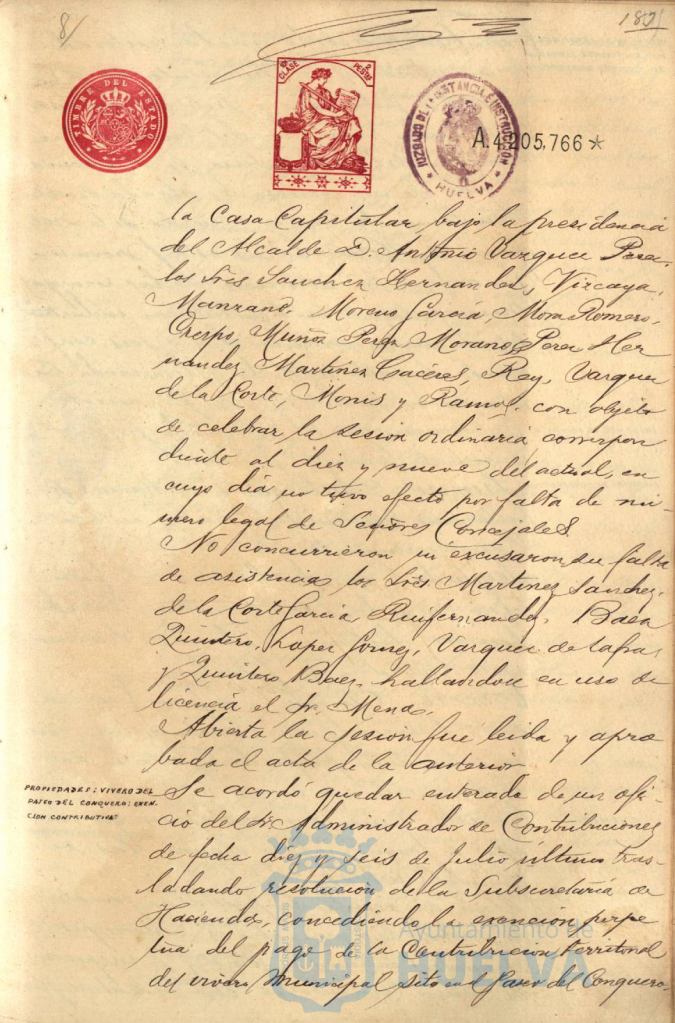 8/
TIMBRE DEL ESTADO
8ª CLASE 2 PESETAS
JUZGADO DE 1ª INSTANCIA E INSTRUCCIÓN
HUELVA
A.4.205,766*
la Casa Capitular bajo la presidencia
del Alcalde D. Antonio Vazquez Perez
los Sres Sanchez Hernandez, Vizcaya,
Manzano, Moreno García, Mora Romero,
Crespo, Muñoz Perez, Morano, Perez Her
nandez, Martinez Caceres, Rey, Vazquez
de la Corte, Monis y Ramos, con objeto
de celebrar la sesion ordinaria correspon
diente al diez y nueve del actual, en
cuyo dia no tuvo efecto por falta de nú-
mero legal de Señores Concejales.
No concurrieron ni excusaron su falta
de asistencia los Sres Martinez Sanchez,
de la Corte Garcia, Ruifernandez, Baena
Quintero, Lopez Gomez, Vazquez de Zafra,
y Quintero Baez, hallandose en uso de
licencia el Sr. Mena.
Abierta la sesion fué leida y apro
bada el acta de la anterior.
PROPIEDADES: VIVERO DEL
PASEO DEL CONQUERO: EXEN
CION CONTRIBUTIVA
Se acordó quedar enterado de un ofi
cio del Sr. Administrador de Contribuciones
de fecha diez y seis de Julio último tras-
ladando resolucion de la Subsecretaría de
Hacienda, concediendo la exencion perpe
tua del pago de la Contribucion territorial
del vivero Municipal sito en el Paseo del Conquero.
Ayuntamiento de
HUELVA